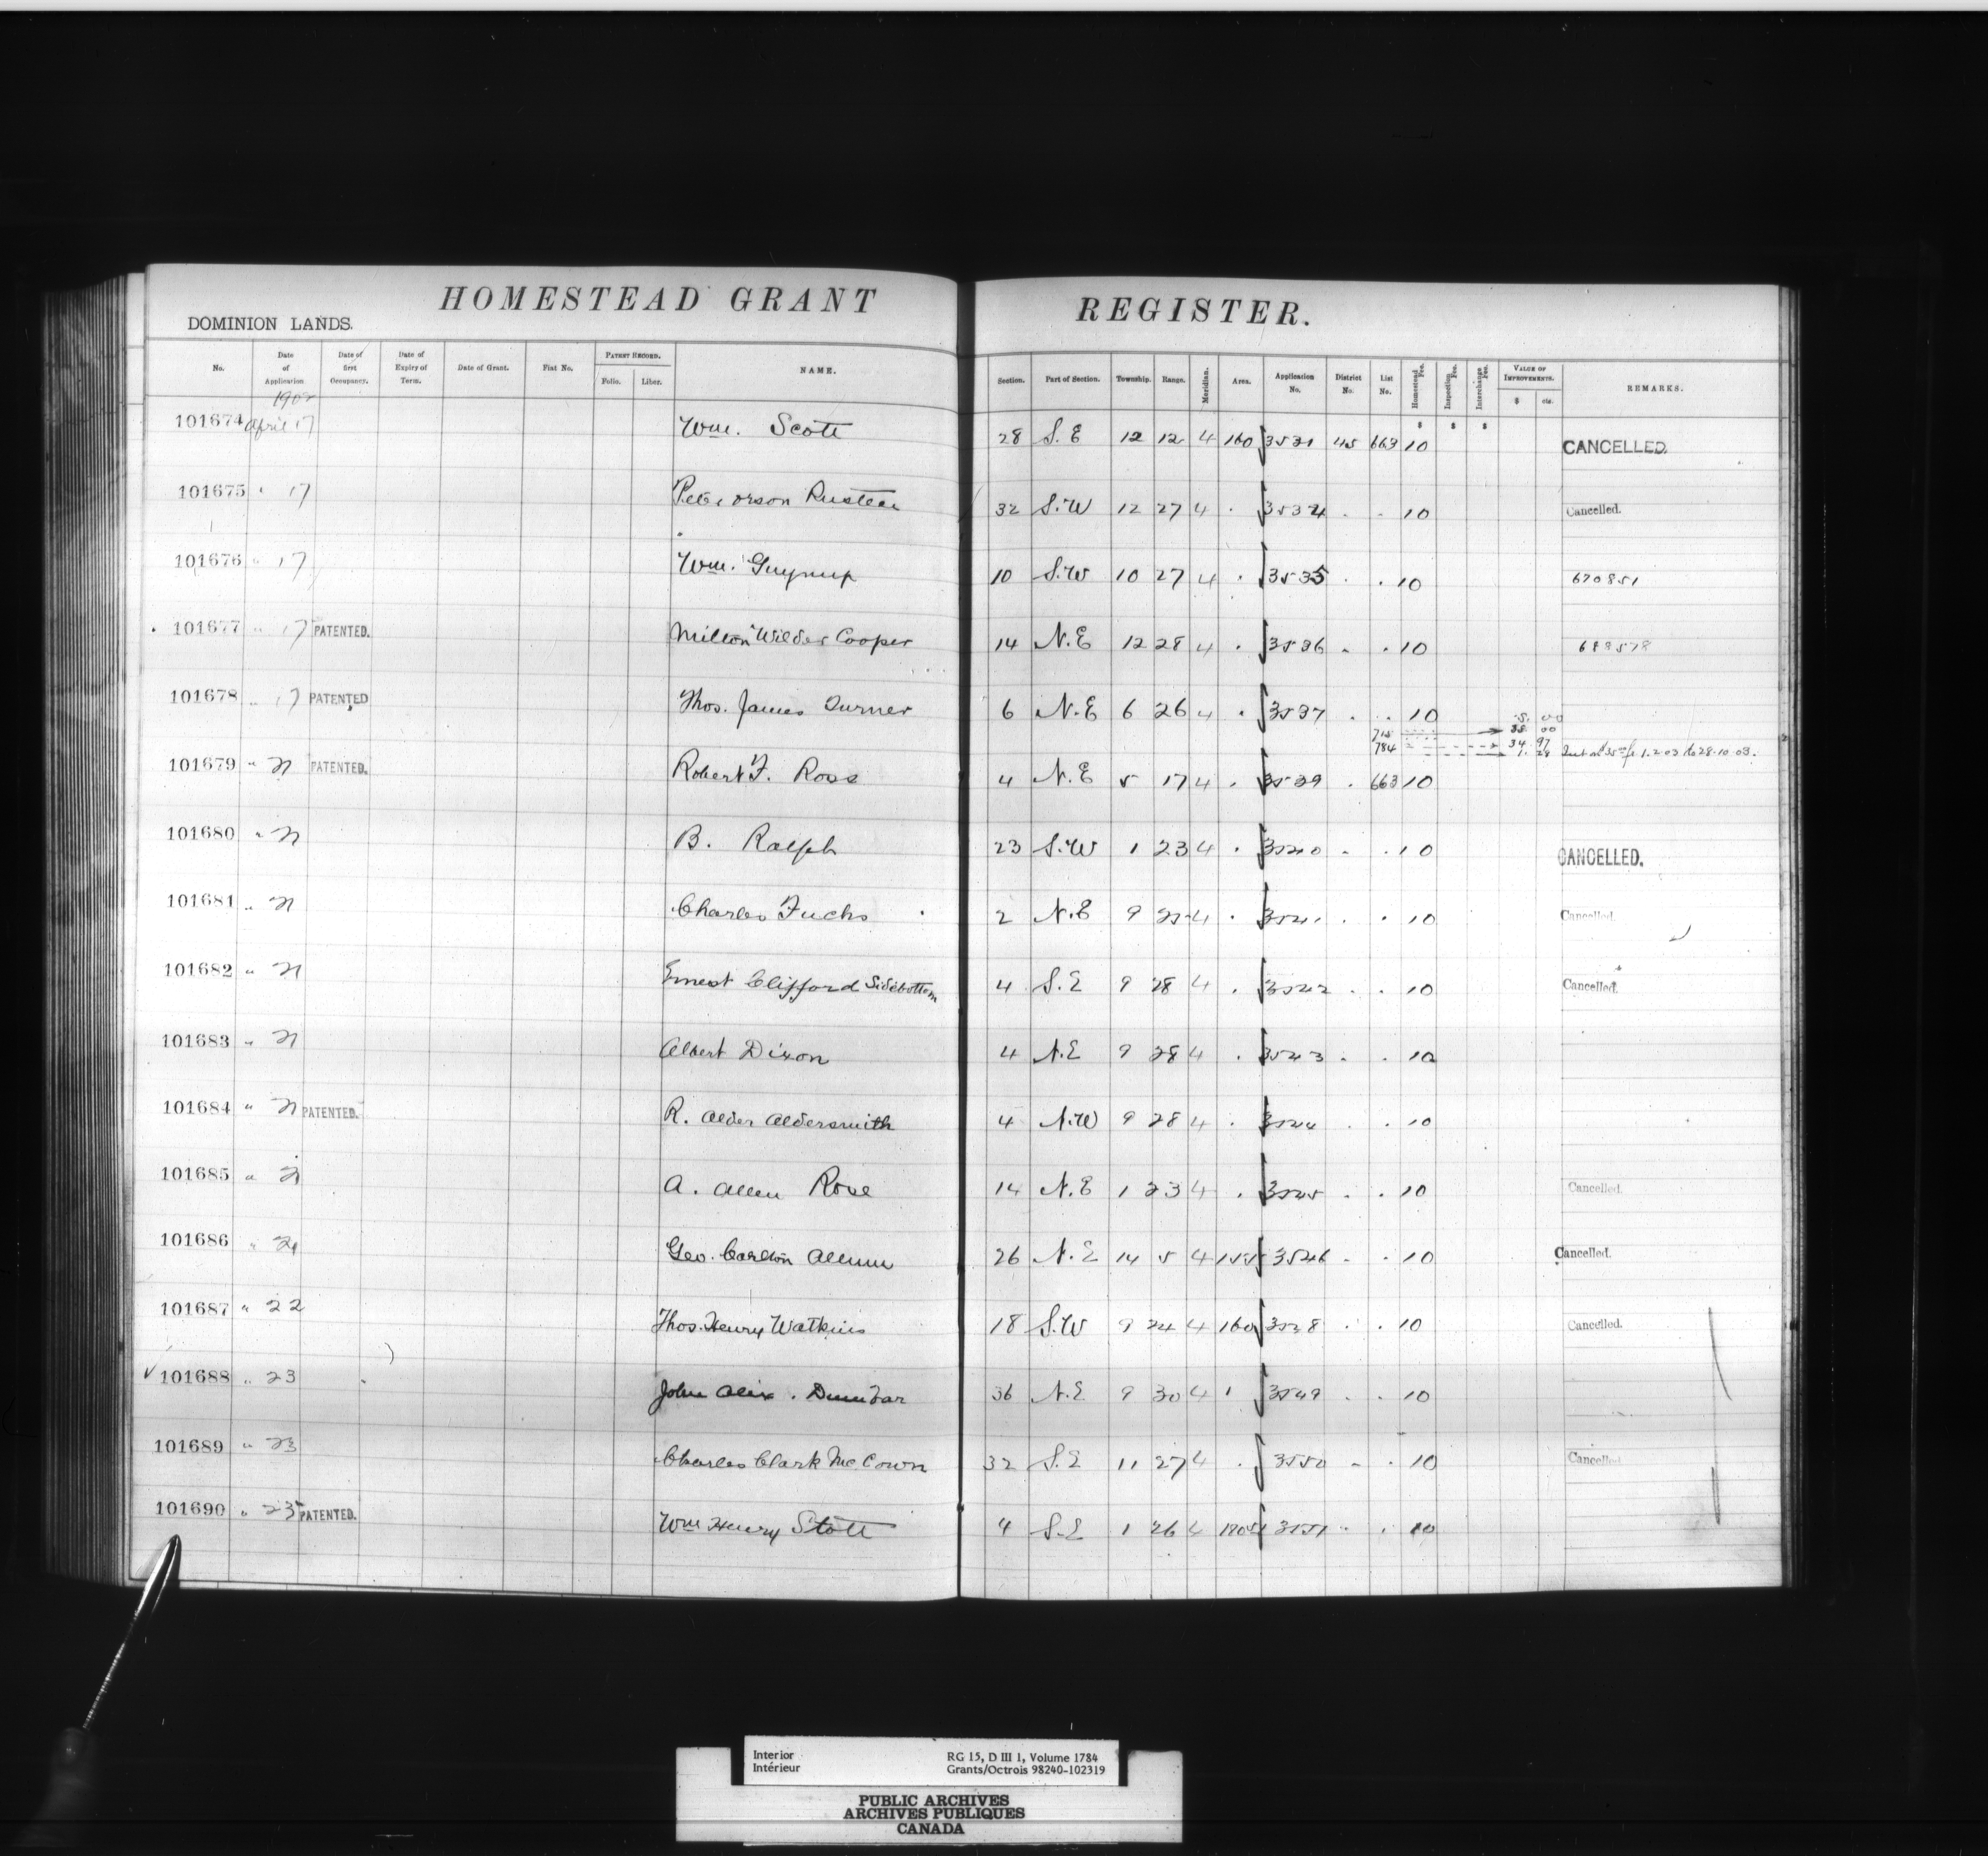 HOMESTEAD GRANT REGISTER.
DOMINION LANDS.
No. Date of Application Date of first Occupancy. Date of Expiry of Term. Date of Grant. Fiat No. PATENT RECORD. Folio. Liber. NAME. Section. Part of Section. Township. Range. Meridian. Area. Application No. District No. List No. Homestead Fee. Inspection Fee. Interchange Fee. VALUE OF IMPROVEMENTS. $ cts. REMARKS.
1902
101674 April 17 Wm. Scott 28 S.E 12 12 4 160 3531 45 663 10 CANCELLED.
101675 " 17 32 S.W 12 27 4 3534 10 Cancelled.
101676 " 17 Wm. 10 S.W 10 27 4 3535 10 670851
101677 " 17 PATENTED. Milton Wilder Cooper 14 N.E 12 28 4 3536 10 688578
101678 " 17 PATENTED Thos. James Turner 6 N.E 6 26 4 3537 10
715 35 00
784 34 97
1. 28 1.2.03 to 28.10.03.
101679 " 21 PATENTED. Robert F. Ross 4 N.E 5 17 4 3539 663 10
101680 " 21 B. Ralph 23 S.W 1 23 4 3540 10 CANCELLED.
101681 " 21 Charles Fuchs 2 N.E 9 4 3541 10 Cancelled.
101682 " 21 Ernest Clifford Sidebottom 4 S.E 9 28 4 3542 10 Cancelled.
101683 " 21 Albert Dixon 4 N.E 9 28 4 3543 10
101684 " 21 PATENTED. R. Alder Aldersmith 4 N.W 9 28 4 3544 10
101685 " 21 A. Allen Rose 14 N.E 1 23 4 3545 10 Cancelled.
101686 " 21 Geo. Carlton 26 N.E 14 5 4 155 3546 10 Cancelled.
101687 " 22 Thos. Henry Watkins 18 S.W 9 24 4 160 3548 10 Cancelled.
101688 " 23 John Alex. Dunbar 36 N.E 9 30 4 3549 10
101689 " 23 Charles Clark McCown 32 S.E 11 27 4 3550 10 Cancelled
101690 " 23 PATENTED. Wm Henry Stott 4 S.E 1 26 4 3551 10
Interior RG 15, D III 1, Volume 1784
Intérieur Grants/Octrois 98240-102319
PUBLIC ARCHIVES
ARCHIVES PUBLIQUES
CANADA